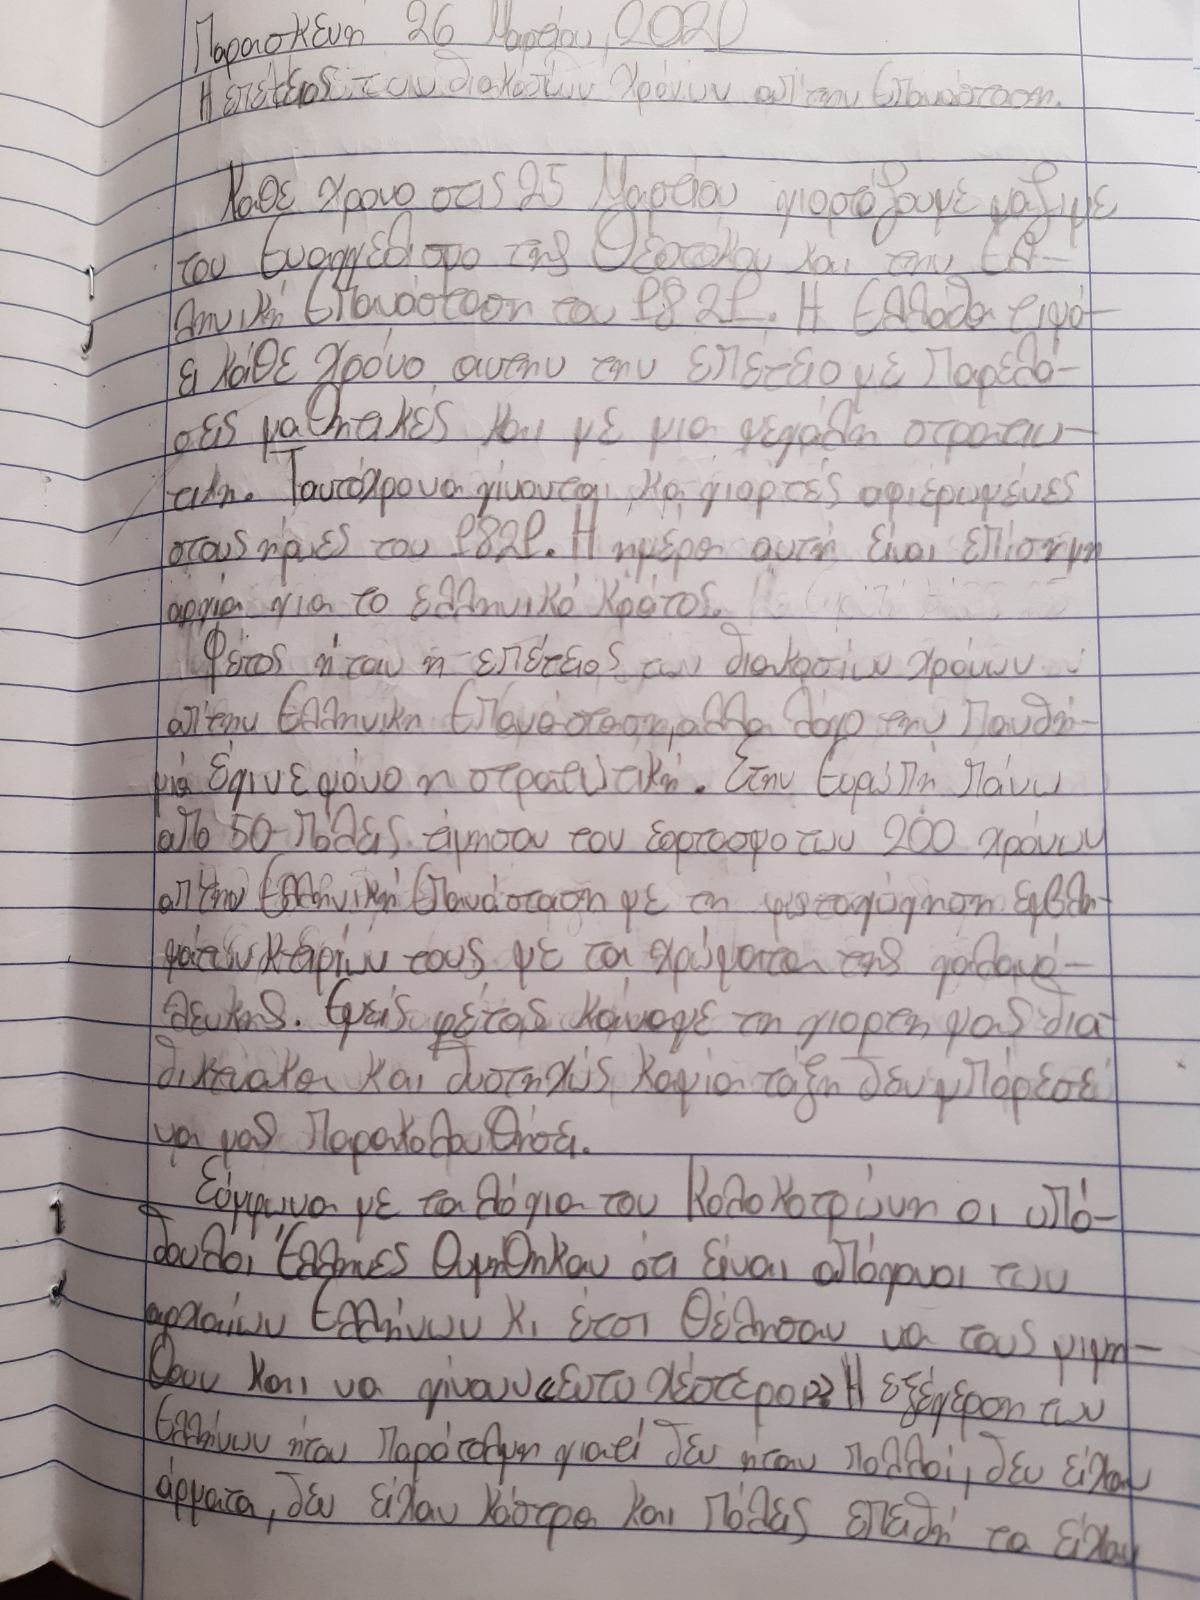 Παρασκευή 26 Μαρτίου, 2021
Η επέτειος των διακοσίων χρόνων απ' την Επανάσταση.
Κάθε χρόνο στις 25 Μαρτίου γιορτάζουμε μαζί με
τον Ευαγγελισμο της Θεοτόκου και την Ελ-
ληνική Επανάσταση του 1821. Η Ελλάδα τιμά-
ει κάθε χρόνο αυτην την επέτειο με παρελά-
σεις μαθητικές και με μια μεγάλη στρατιω-
τική. Ταυτόχρονα γίνονται κα γιορτές αφιερωμένες
στους ήρωες του 1821. Η ημέρα αυτή είναι επίσημη
αργία για το ελληνικό κράτος.
Φέτος ήταν η επέτειος των διακοσίων χρόνων
απ' την Ελληνικη Επανάσταση, αλλα λόγο την πανδη-
μία έγινε μόνο η στρατιωτική. Στην Ευρώπη πάνω
από 50 πόλεις τίμησαν τον εορτασμο των 200 χρόνων
απ' την Ελληνική Επανάσταση με τη φωταγώγηση εμβλη-
ματικών κτιρίων τους με τα χρώματα της γαλανό-
λευκης. Εμείς φέτος κάναμε τη γιορτη μας δια-
δικτυακα και δυστηχώς καμία τάξη δεν μπόρεσε
να μας παρακολουθήσει.
Σύμφωνα με τα λόγια του Κολοκοτρώνη οι υπό-
δουλοι Έλληνες θυμήθηκαν ότι είναι απόγονοι των
αρχαίων Ελλήνων κι έτσι θέλησαν να τους μιμη-
θουν και να γίνουν «ευτυχέστεροι» Η εξέγερση των
Ελλήνων ήταν παράτολμη γιατί δεν ήταν πολλοί, δεν είχαν
άρματα, δεν είχαν κάστρα και πόλεις επειδή τα είχαν